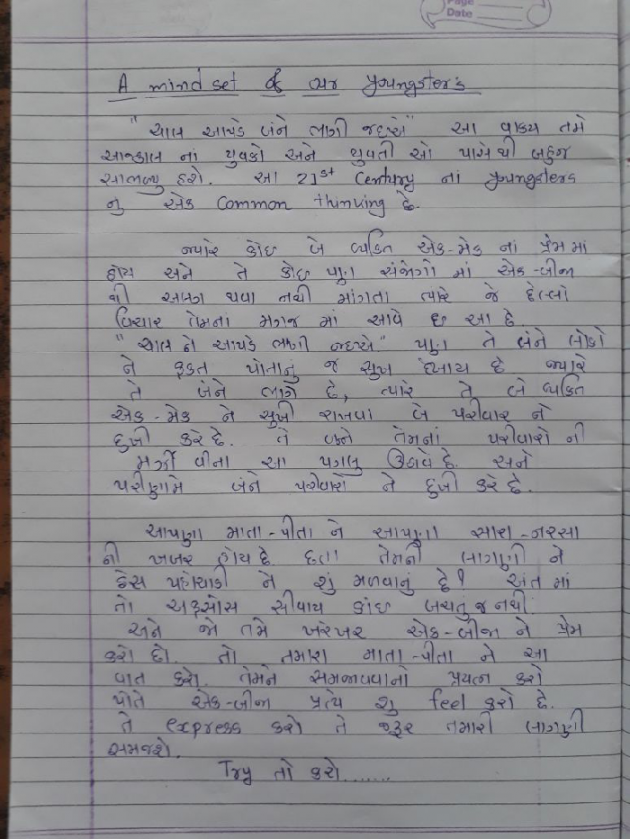 Page
Date
A mindset of our youngster's
"ચાલ આપડે બંને ભાગી જઇએ" આ વાક્ય તમે
આજકાલ નાં યુવકો અને યુવતી ઓ પાસે થી બહુજ
સાભળ્યુ હશે. આ 21st Century નાં youngsters
નુ એક Common thinking છે.
જ્યારે કોઇ બે વ્યકિત એક-મેક નાં પ્રેમ માં
હોય અને તે કોઇ પણ સંજોગો માં એક-બીજા
થી અલગ થવા નથી માંગતા ત્યારે જે છેલ્લો
વિચાર તેમનાં મગજ માં આવે છ આ છે
"ચાલ ને આપડે ભાગી જઇએ." પણ તે બંને લોકો
ને ફકત પોતાનું જ સુખ દેખાય છે જ્યારે
તે બંને ભાગે છે, ત્યારે તે બે વ્યકિત
એક-મેક ને સુખી રાખવા બે પરીવાર ને
દુખી કરે છે. તે બંને તેમનાં પરીવારો ની
મર્જી વીના આ પગલુ ઉઠાવે છે. અને
પરીણામે બંને પરીવારો ને દુખી કરે છે.
આપણા માતા-પીતા ને આપણા સારા-નરસા
ની ખબર હોય છે છતા તેમની લાગણી ને
ઠેસ પહોચાડી ને શું મળવાનું છે? અંત માં
તો અફસોસ સીવાય કાંઇ બચતુ જ નથી
અને જો તમે ખરેખર એક-બીજા ને પ્રેમ
કરો છો. તો તમારા માતા-પીતા ને આ
વાત કરો. તેમને સમજાવવાનો પ્રયત્ન કરો
પોતે એક-બીજા પ્રત્યે શુ feel કરો છે.
તે express કરો તે જરૂર તમારી લાગણી
સમજશે.
Try તો કરો.......